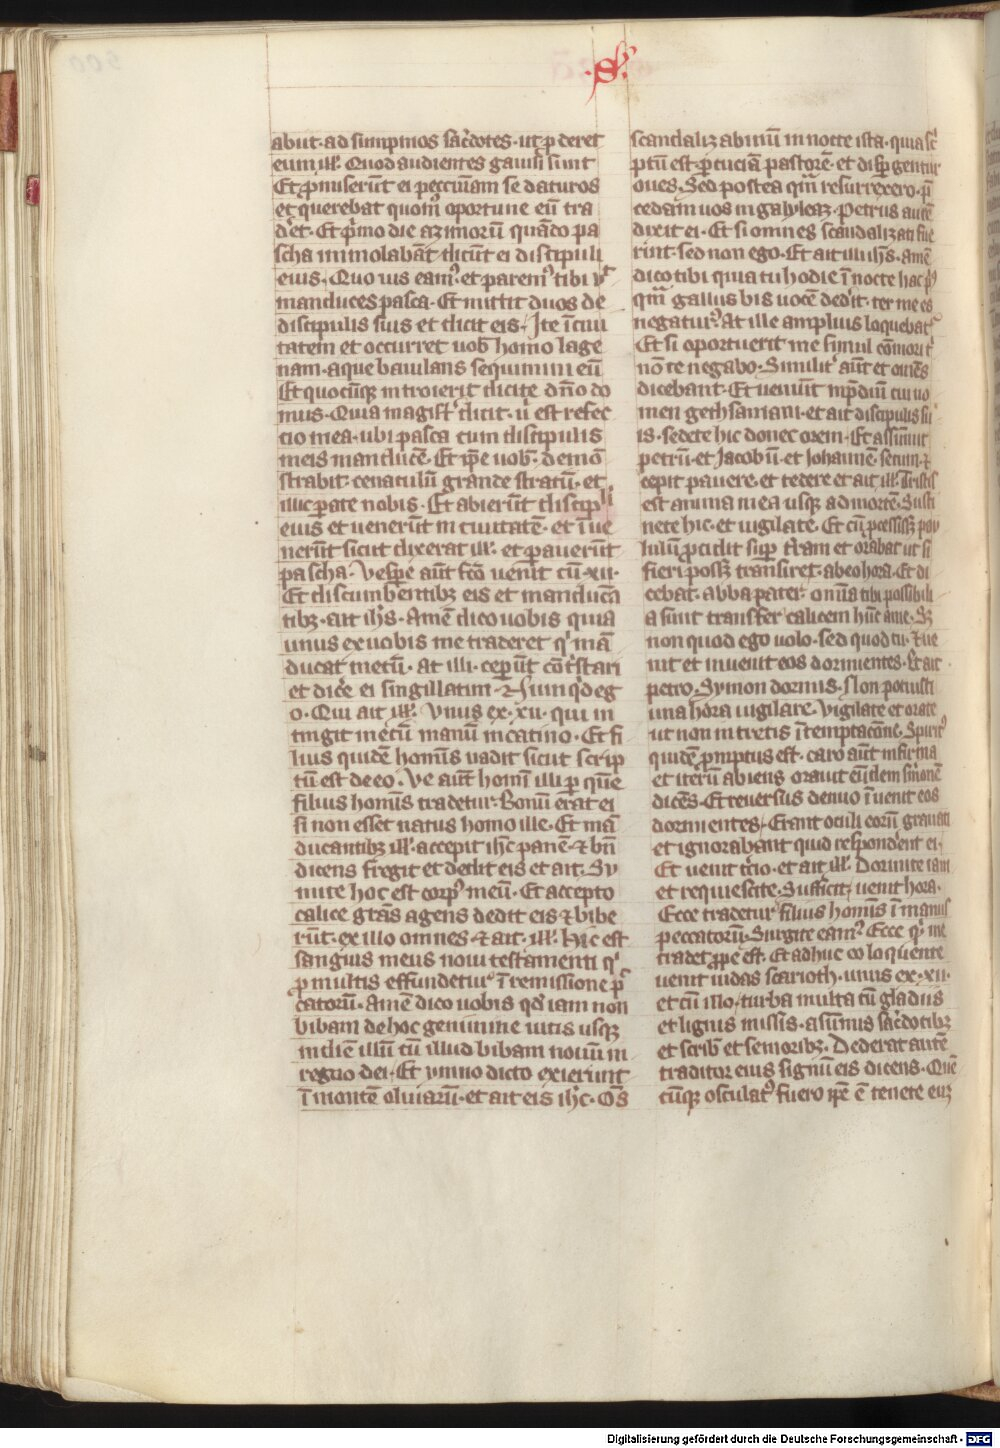 .S.
abiit· ad summos sac̓dotes· ut ꝓderet
eum ill̓. Quod audientes gauisi sunt
Et ꝓmiserūt ei peccuniam se daturos
et querebat quom̄ oportune eū tra
d̓et· Et p̓mo die azimorū quādo pa
scha immolabāt dicūt ei discipuli
eius· Quo uis eam᷒· et parem᷒ tibi vt
manduces pasca· Et mittit duos de
discipulis suis et dicit eis· Ite ī ciui
tatem et occurret uob̄ homo lage
nam aque baiulans sequimini eū
Et quocūqꝫ introierit dicite dn̄o do
mus· Quia magist̓ dicit· u̓ est refec
tio mea· ubi pasca cum discipulis
meis manducē· Et ip̄e uob̄· demō
strabit· cenaculū grande stratū· et
illic parate nobis· Et abierūt discipli
eius et uenerūt in ciuitatē· et īue
nerūt sicut dixerat ill̓· et parauerūt
pascha· Vesꝑe aūt fc̄o uenit cū·xii·
Et discumbentibꝫ eis et manducā
tibꝫ· ait ih̄s· Amē dico uobis quia
unus ex uobis me traderet q̓ mā
ducat mecū· At illi· ceperūt cōt̓stari
et dic̓e ei singillatim· Nūnq̓d eg
o· Qui ait ill̓· Vnus ex·xii· qui in
tingit mecū manū in catino· Et fi
lius quidē homīs uadit sicut scrip
tū est de eo· Ve aūt homī illi ꝑ quē
filius homīs tradetur· Bonū erat ei
si non esset natus homo ille· Et mā
ducantibꝫ ill̓· accepit ih̄c panē· ⁊ bn̄
dicens fregit et dedit eis et ait· Su
mite hoc est corp᷒ meū· Et accepto
calice grās agens dedit eis ⁊ bibe
rūt· ex illo omnes ⁊ ait· ill̓· Hic est
sangius meus noui testamenti q̓
ꝓ multis effundetur ī remissione pec
catorū· Amē dico uobis qd̓ iam non
bibam de hoc genimine uitis usqꝫ
in diē illū cū illud bibam nouū in
regno dei· Et ymno dicto exierunt
ī montē oliuarū· et ait eis ih̄c· Om̄s
scandalizabiminī in nocte ista· quia sc̓
ptū est· percuciā pastorē· et dispergentur
oues· Sed postea qm̄ resurrexero· p̄
cedam uos in galyleaꝫ· Petrus autē
dixit ei· Et si omnes scandalizati fue
rint· sed non ego· Et ait illi ih̄s· amē
dico tibi quia tu hodie ī nocte hac p᷒
qm̄ gallus bis uocē ded̓it· ter me es
negatur᷒ At ille amplius loquebat᷒
Et si oportuerit me simul cōmorit̓
nō te negabo· Similit̓ aūt et omēs
dicebant· Et ueniūt in p̄diū cui no
men gethsamani· et ait discipulis su
is· sedete hic donec orem· Et assumit
petrū· et Jacobū· et Johannē· secum· ⁊
cepit pauere· et tedere et ait ill̓· Tristis
est anima mea usqꝫ ad mortē· Susti
nete hic· et uigilate· Et cū ꝓcessissꝫ pau
lulū ꝓcidit suꝑ t̓ram et orabat ut si
fieri possꝫ transiret· ab eo hora· Et di
cebat· abba pater· omīa tibi possibili
a sunt transfer calicem hūc a me· Sꝫ
non quod ego uolo· sed quod tu· Et ue
nit et inuenit eos dormientes· Et ait
petro· Symon dormis· Non potuisti
una hora uigilare· Vigilate et orate
ut non intretis ī temptacōne· Spirit᷒
quidē promptus est· caro aūt infirma
et iterū abiens orauit eūdem s̓monē
dicēs· Et reuersus denuo īuenit eos
dormientes· Erant oculi eorū grauati
et ignorabant quid respond̓ent ei·
Et uenit t̓cio· et ait ill̓· Dormite iam
et requiescite· Sufficit· uenit hora·
Ecce tradetur filius homīs ī manus
peccatorū· Surgite eam᷒ Ecce q̓ me
tradet ꝓpe est· Et adhuc eo loquente
uenit iudas scarioth· unus ex·xii·
et cū illo· turba multa cū gladiis
et lignis missis· a sūmus sac̓dotibꝫ
et scrib̄ et senioribꝫ· Dederat autē
traditor eius signū eis dicens· Quē
cūqꝫ osculat᷒ fuero ip̄e ē tenete euꝫ
Digitalisierung gefördert durch die Deutsche Forschungsgemeinschaft - DFG